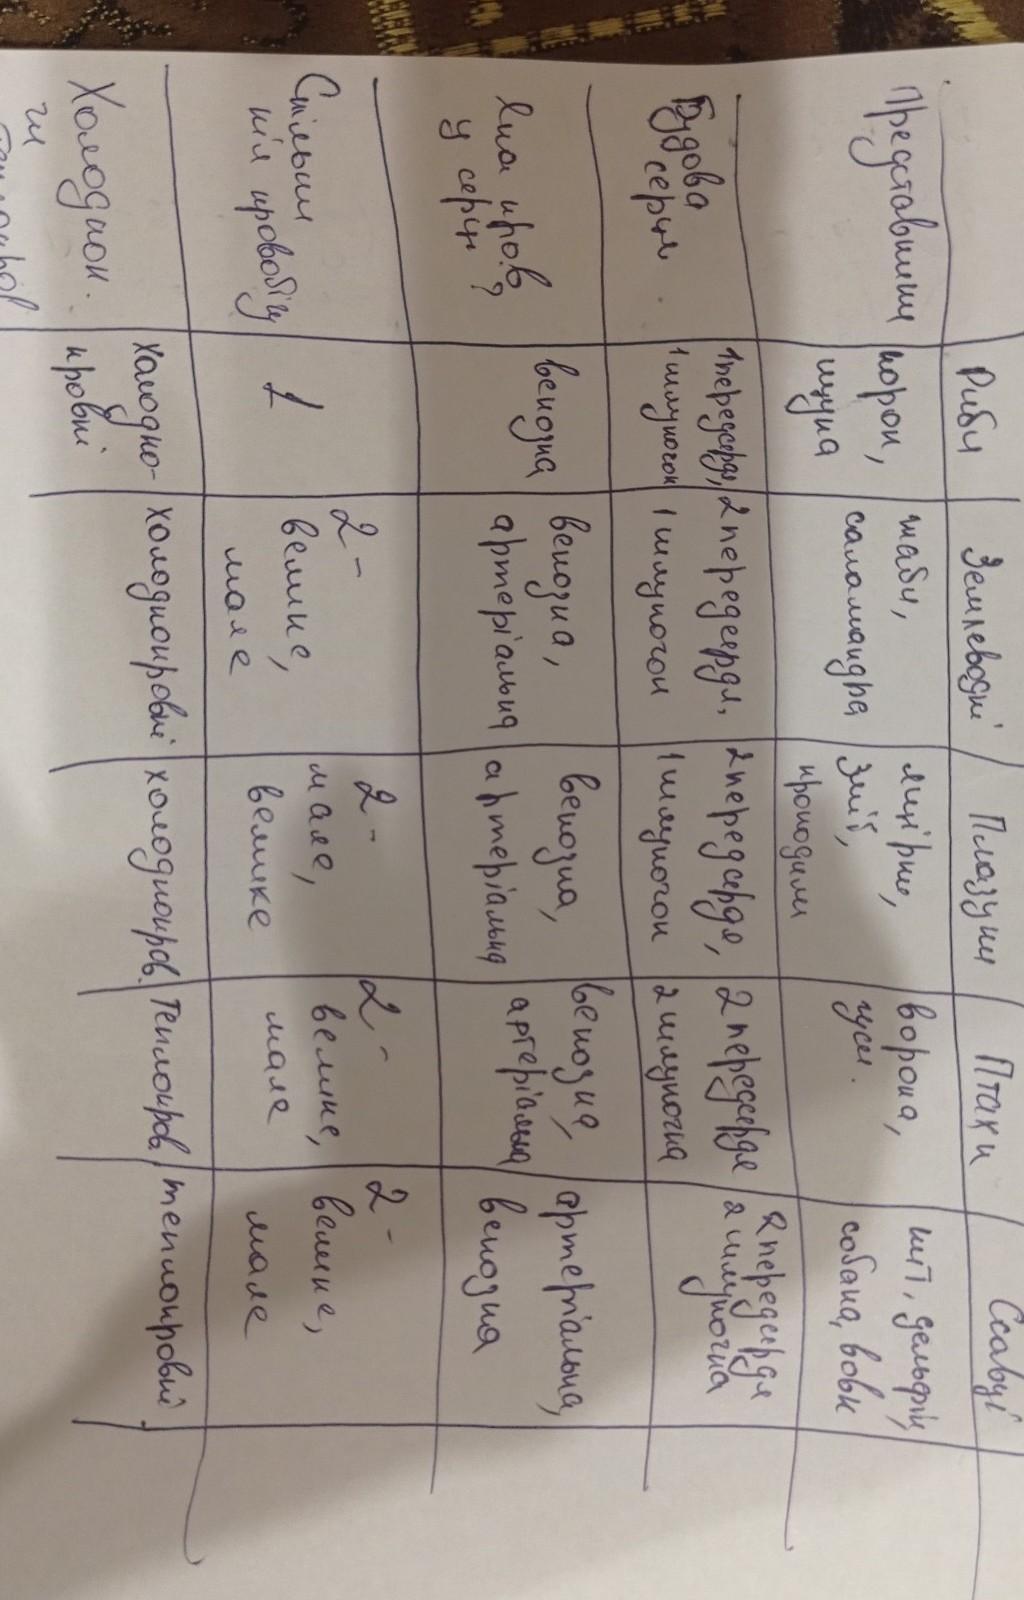 Риби
Землеводні
Плазуни
Птахи
Ссавці
Представники
короп,
щука
жаби,
саламандра
ящірки,
змії,
крокодили
ворона,
гуси.
кіт, дельфін,
собака, вовк
Будова
серця
1 передсердя,
1 шлуночок
2 передсердя,
1 шлуночок
2 передсердя,
1 шлуночок
2 передсердя
2 шлуночка
2 передсердя
2 шлуночка
Яка кров
у серці?
венозна
венозна,
артеріальна
венозна,
артеріальна
венозна,
артеріальна
артеріальна,
венозна
Скільки
кіл кровобігу
1
2 -
велике,
мале
2 -
мале,
велике
2 -
велике,
мале
2 -
велике,
мале
Холоднок.
чи
теплокров
холодно-
кровні
холоднокровні
холоднокров.
теплокров.
теплокровні